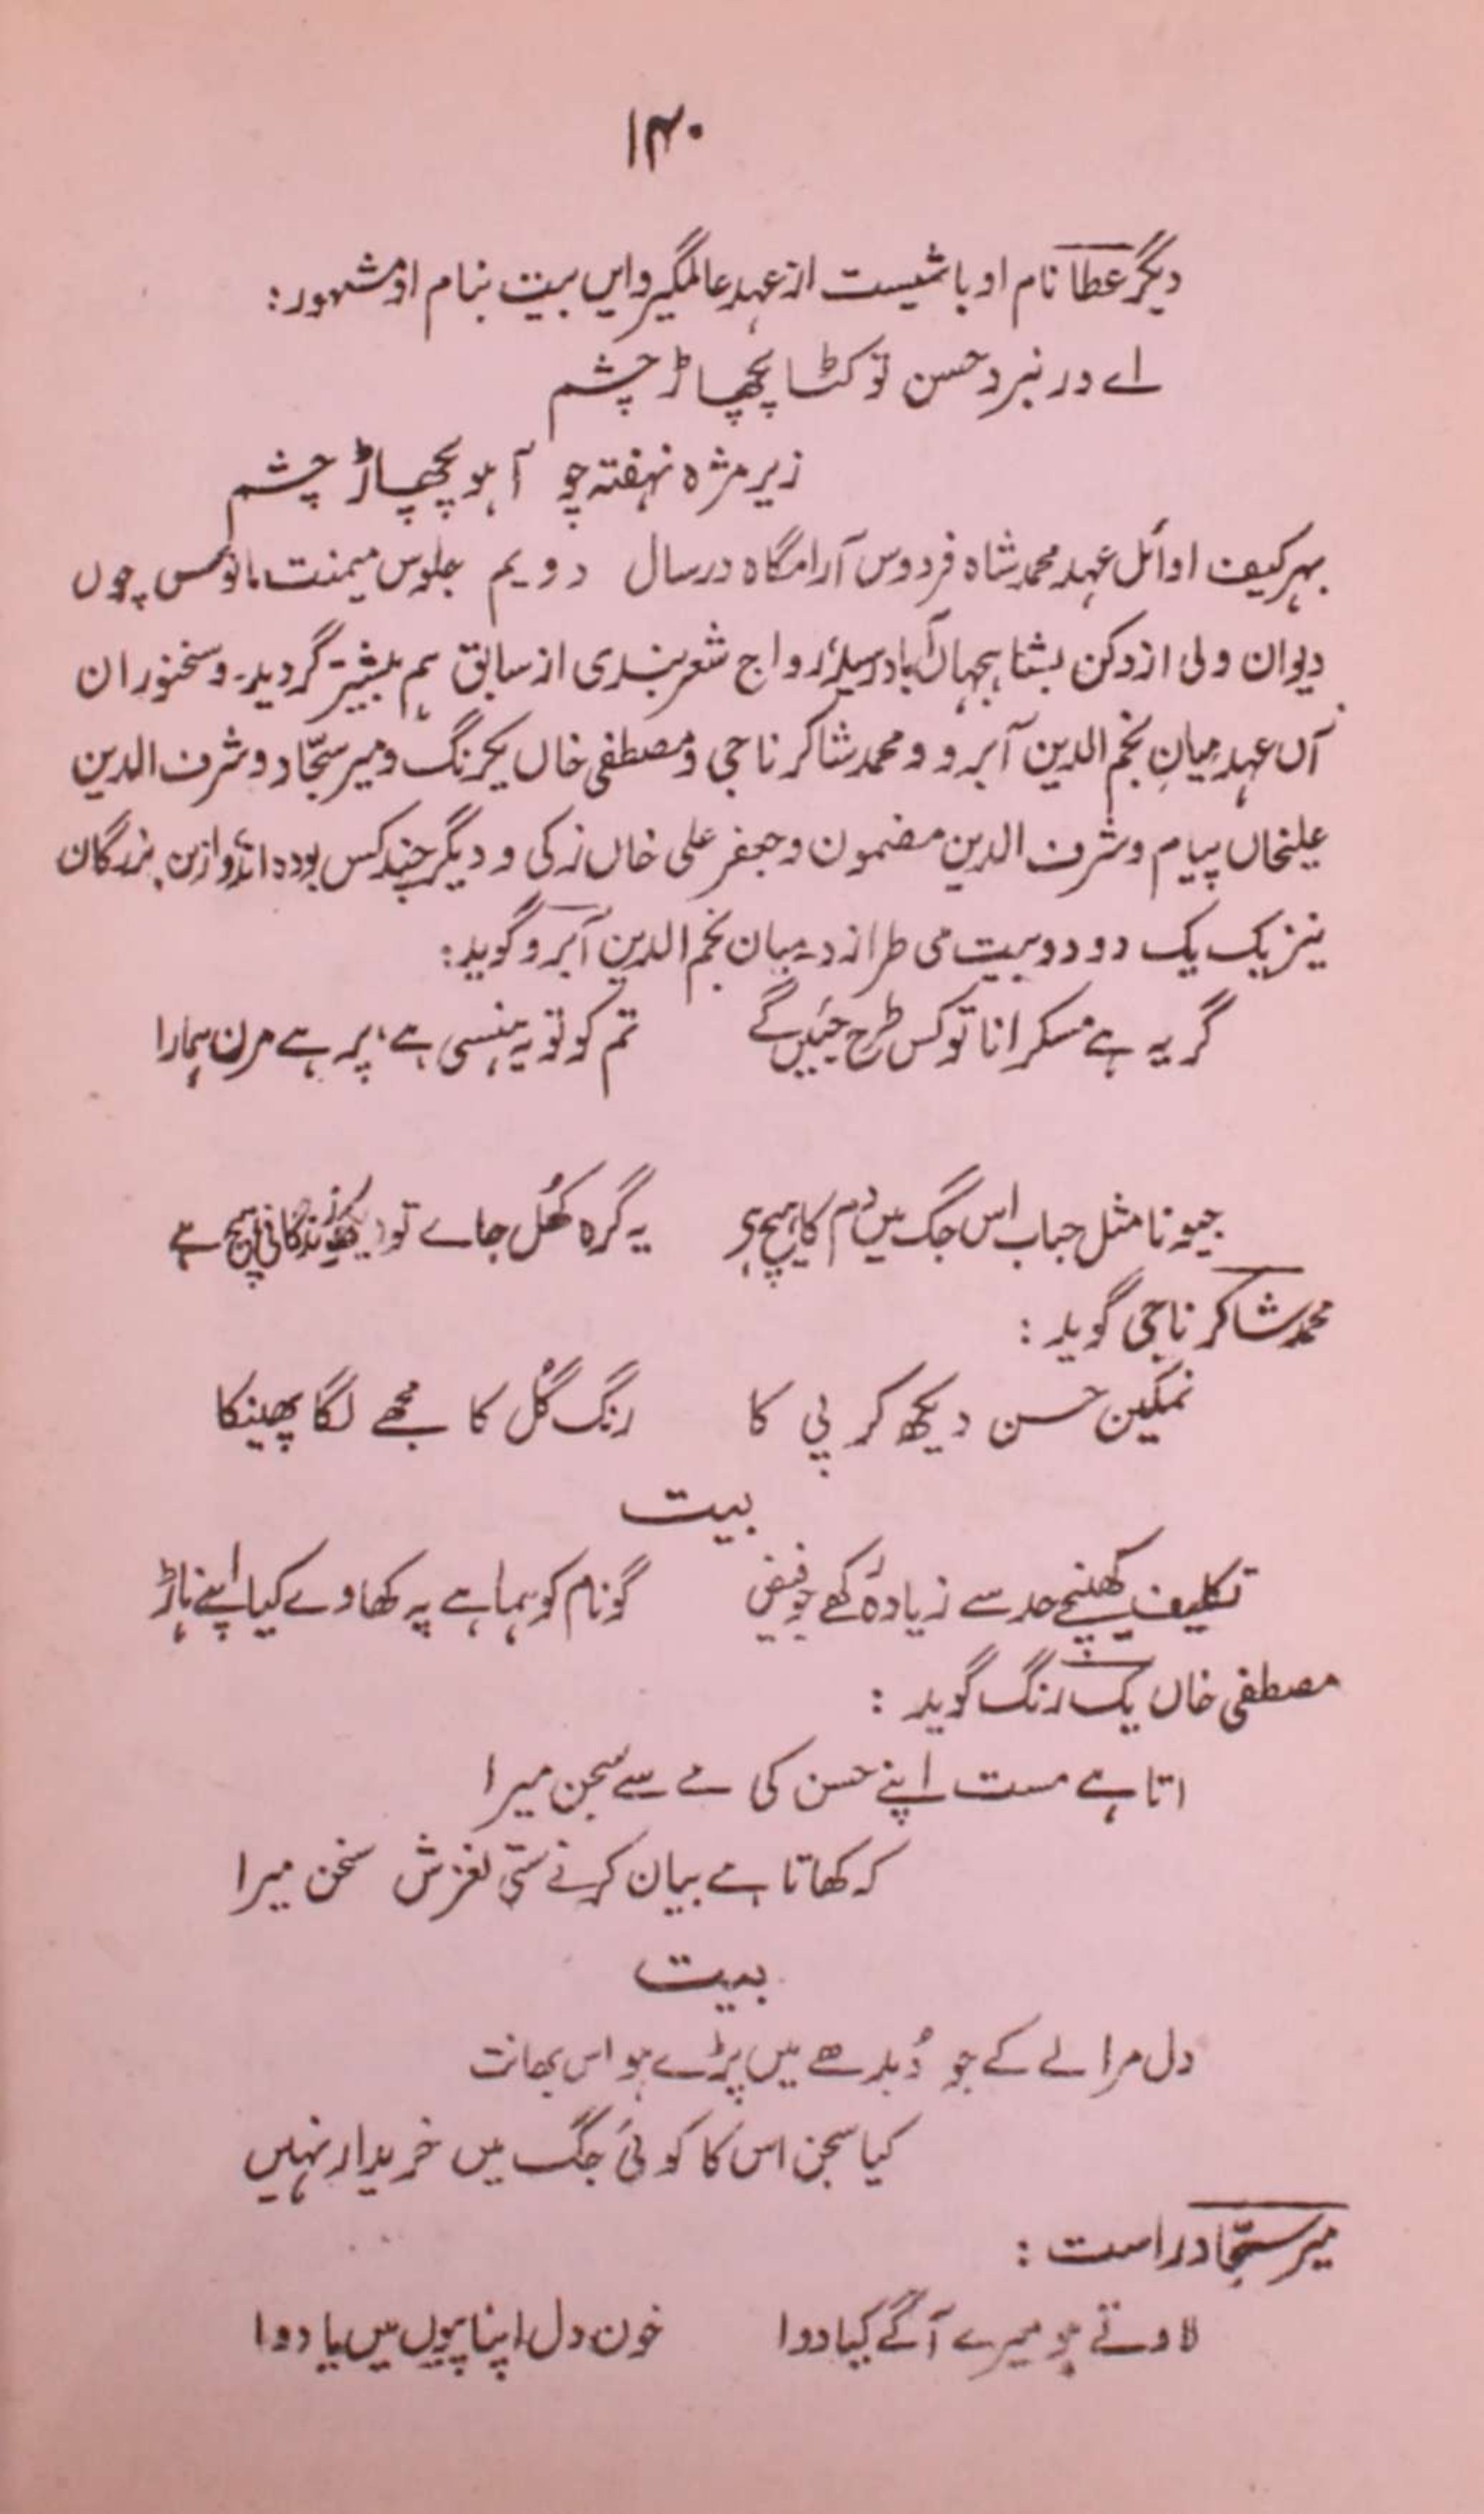 ۱۴۰
دیگر عطا نام او باشیست از عہد عالمگیر و ایں بیت بنام او مشہور:
اے در نبرد حسن تو کٹا پچھاڑ چشم
زیر مژہ نہفتہ چو آہو پچھاڑ چشم
بہر کیف اوائل عہد محمد شاہ فردوس آرامگاہ در سال دویم جلوس میمنت مانوس چوں
دیوان ولی از دکن بشاہجہاں آباد رسید، رواج شعر ہندی از سابق ہم بیشتر گردید۔ و سخنوران
آں عہد میاں نجم الدین آبرو و محمد شاکر ناجی و مصطفی خاں یکرنگ و میر سجّاد و شرف الدین
علیخاں پیام و شرف الدین مضمون و جعفر علی خاں زکی و دیگر چند کس بودہ اند و ازیں بزرگان
نیز یک یک دو دو بیت می طرازد۔ میاں نجم الدین آبرو گوید:
گر یہ ہے مسکرانا تو کس طرح جئیں گے تم کو تو یہ ہنسی ہے، پر ہے مرن ہمارا
جیونا مثل حباب اس جگ میں دم کا ہیچ ہی یہ گرہ کھُل جاے تو دیکھو زندگانی ہیچ ہے
محمد شاکر ناجی گوید :
نمکین حسن دیکھ کر پی کا رنگ گُل کا مجھے لگا پھینکا
بیت
تکلیف کھینچے حد سے زیادہ رکھے جو فیض گو نام کو ہما ہے پہ کھاوے کیا اپنے ہاڑ
مصطفی خاں یک رنگ گوید :
اتا ہے مست اپنے حسن کی مے سے سجن میرا
کہ کھاتا ہے بیان کرنے ستی لغزش سخن میرا
بیت
دل مرا لے کے جو دُبدھے میں پڑے ہو اس بھانت
کیا سجن اس کا کوئی جگ میں خریدار نہیں
میر سجّاد راست :
لاوتے ہو میرے آگے کیا دوا خون دل اپنا پیوں میں یا دوا